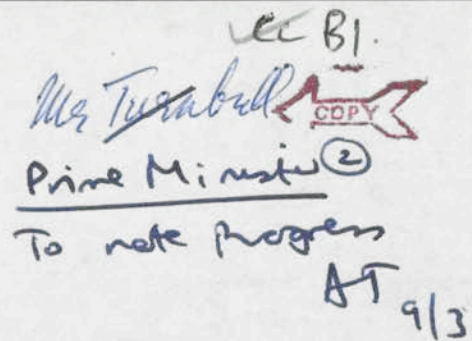 cc B1.
Mr Turnbull
COPY
Prime Minister ②
To note progress
AT 9/3